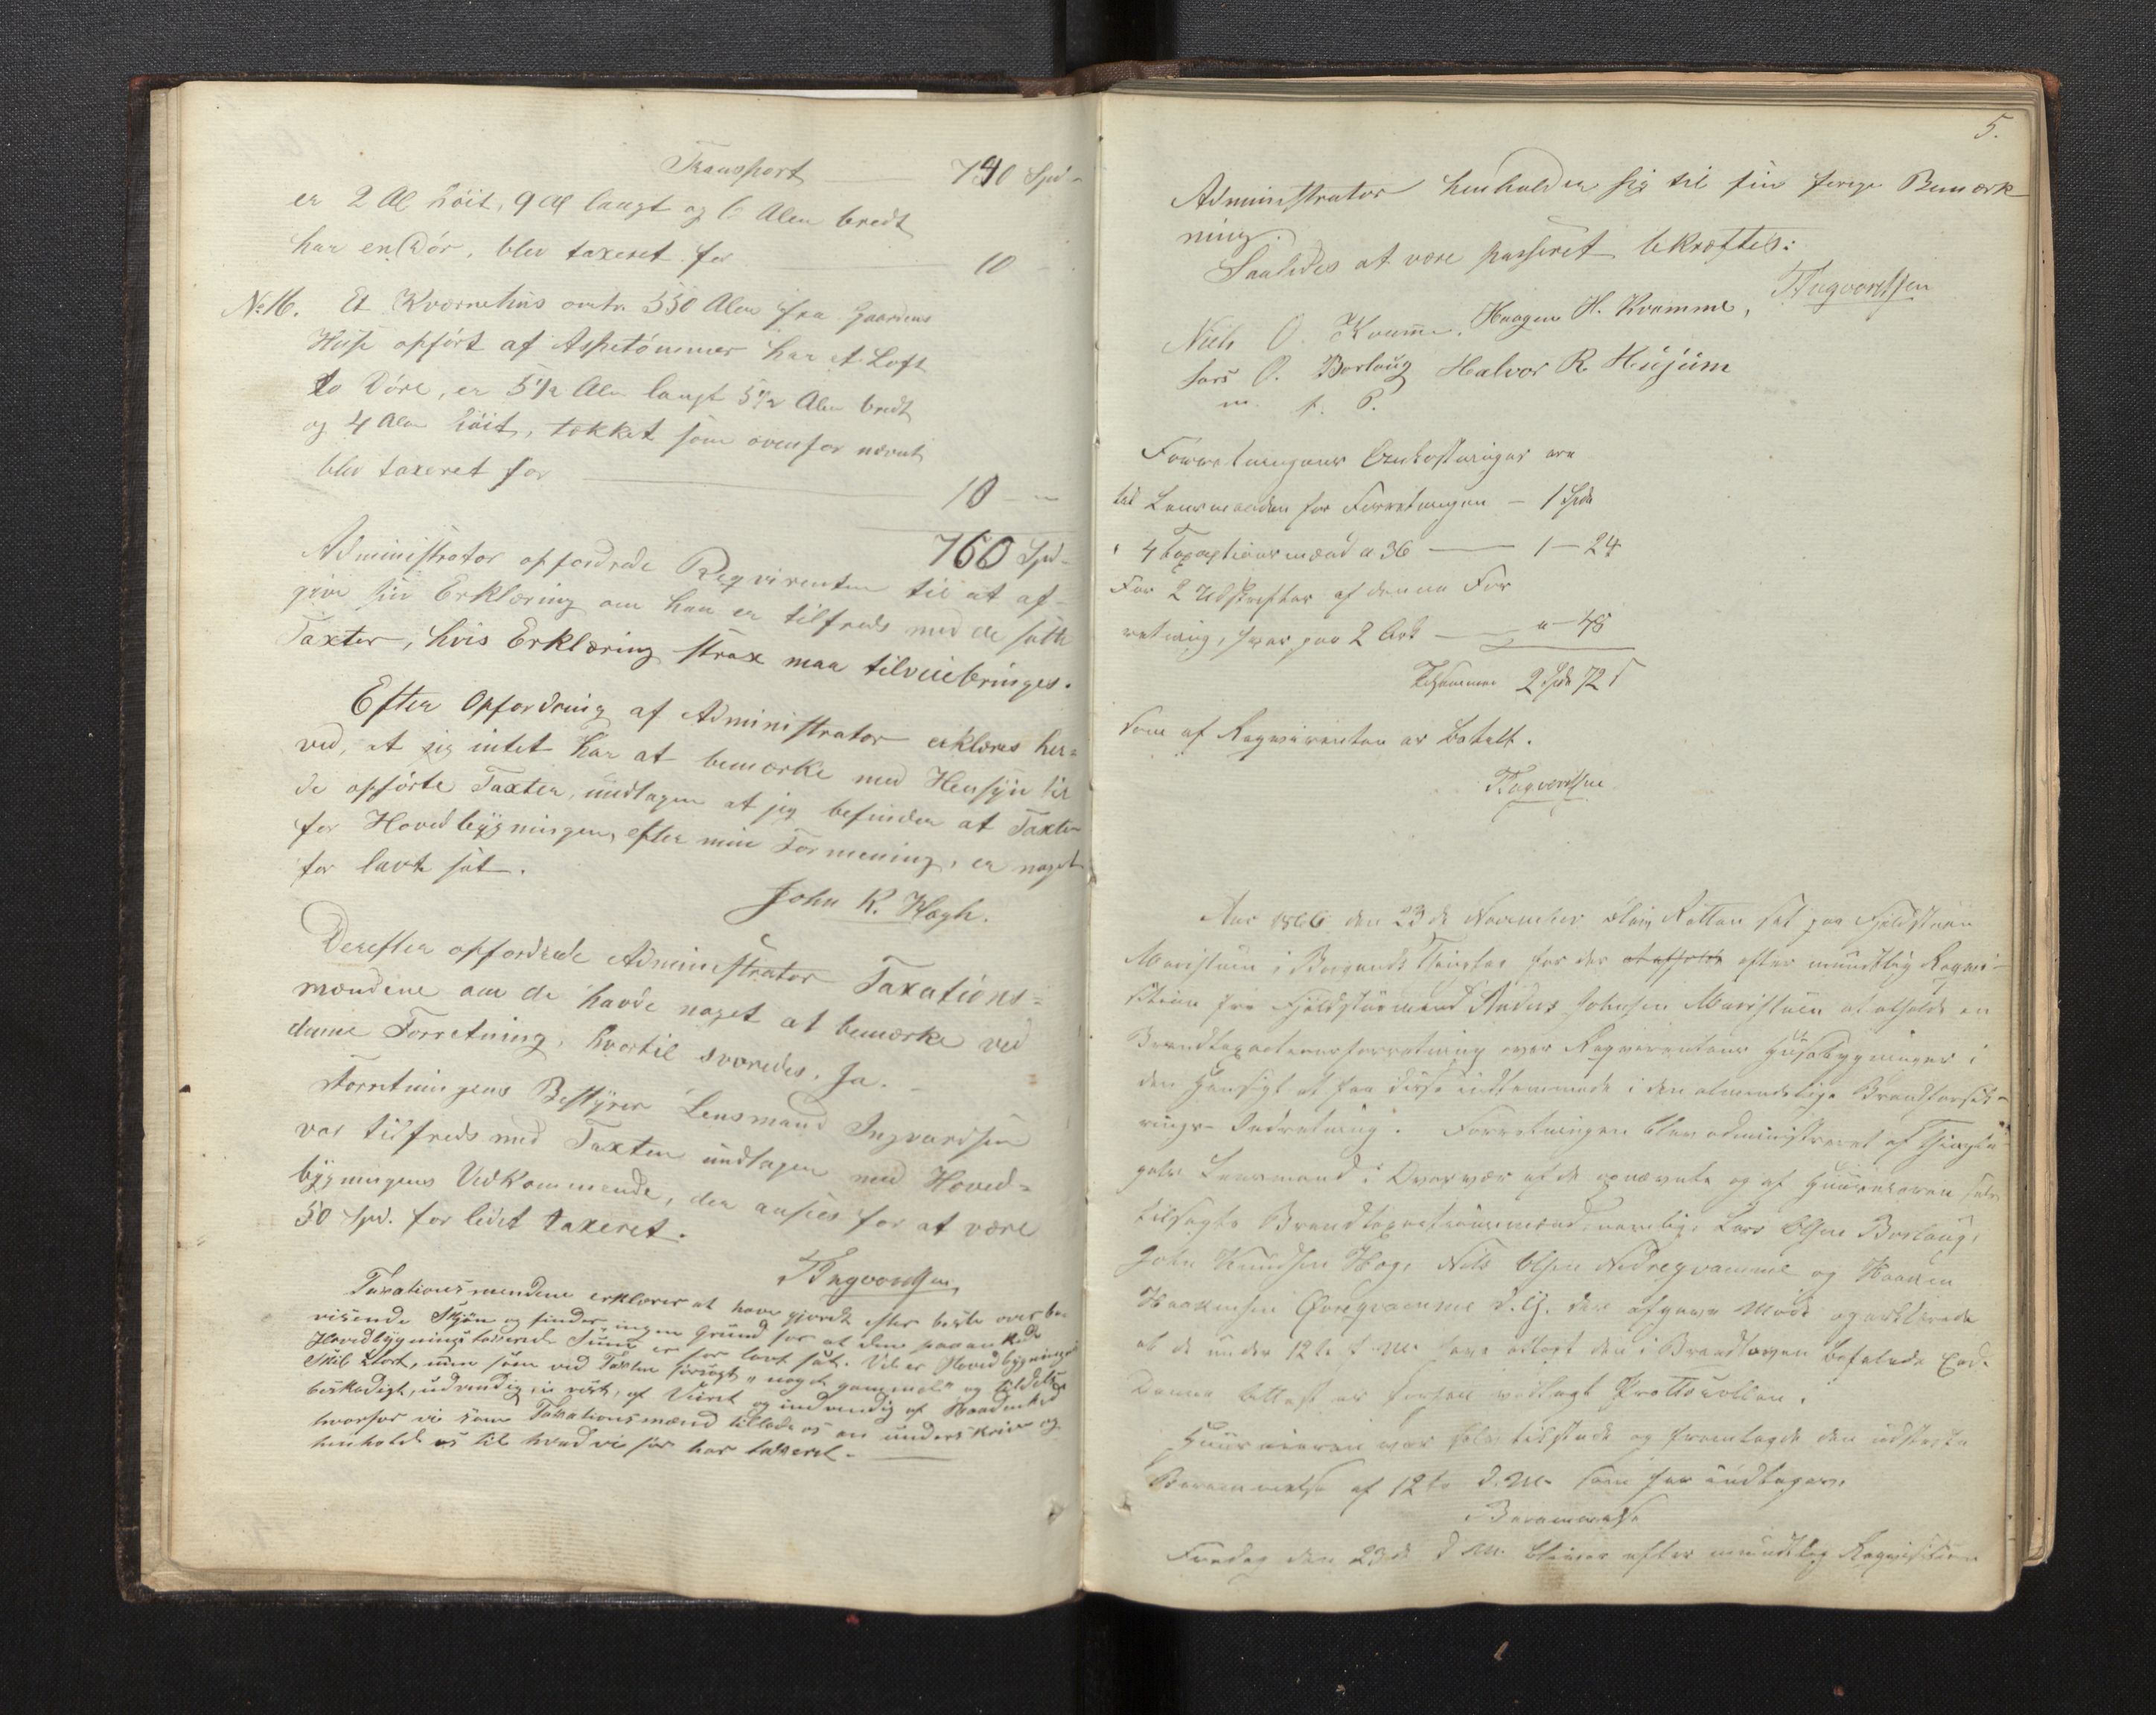 Transport 740 Spd.
er 2 Al höit, 9 Al langt og 6 Alen bredt
har en Dör, blev taxeret for 10
No 16. Et Kværnehus omtr. 550 Alen fra Gaardens
Huse opfört af Aspetömmer har et Loft
to Döre, er 5½ Alen langt 5½ Alen bredt
og 4 Alen höit, tækket som ovenfor nævnt
blev taxeret for
10 —
760 Spd.
Administrator opfordrede Reqvirenten til at af-
give sin Erklæring om han er tilfreds med de satte
Taxter, hvis Erklæring strax maa tilveiebringes.
Efter Opfordring af Administrator erklæres her-
ved, at jeg intet har at bemærke med Hensyn til
de opförte Taxter, undtagen at jeg befinder at Taxten
for Hovedbygningen, efter min Formening, er noget
for lavt sat.
John K. Hægh.
Derefter opfordrede Administrator Taxations-
mændene om de havde noget at bemærke ved
denne Forretning, hvortil svaredes. Ja. –
Forretningens Bestyrer Lensmand Ingvardsen
var tilfreds med Taxten undtagen med Hoved-
bygningens Vedkommende, der ansees for at være
50 Spd. for lidet taxeret.
TIngvardsen
Taxationsmendene erklærer at have gjordt efter beste overbe-
visende Skjön og finder ingen Grund for at den paaankede
Hovedbygnings taxerede Sum er for lavt sat. Vel er Hovedbygnings
Skib stort, men som ved Taxten forsögt "noget gammel" og tildels
beskadigt, udvendig, i vest, af Veiret og indvendig af Vaadenhed
hvorfor vi som Taxationsmænd tillade os an underskrive og
henholde os til hvad vi för har taxeret. —
5.
Administrator henholder sig til sin forige Bemærk
ning.
Saaledes at være passeret bekræftes:
TIngvardsen
Niels O. Kvamme, Haagen H. Kvamme,
Lars O. Borlaug Halvor R Hujum
m. f. P.
Forretningens Omkostninger ere
til Lensmanden for Forretningen — 1 Spd
" 4 Taxationsmænd a 36 — 1 — 24
For 2 Udskrifter af denne For
retning, hver paa 2 Ark — " — 48
Tilsammen 2 Spd 72 s
som af Reqvirenten er betalt.
TIngvardsen
Aar 1866 den 23de November blev Retten sat paa Fjeldstuen
Maristuen i Borgunds Thinglag for der at afholde efter mundtlig Reqvi-
sition fra Fjeldstuemand Anders Johnsen Maristuen at afholde en
Brandtaxationsforretning over Reqvirentens Husebygninger i
den Hensigt at faa disse indlemmede i den almindelige Brandforsik-
rings-Indretning. Forretningen blev administreret af Thingla-
gets Lensmand i Overvær af de opnævnte og af Huuseieren selv
tilsagte Brandtaxationsmænd, nemlig: Lars Olsen Borlaug,
John Knudsen Hæg, Nils Olsen Nedreqvamme og Haaken
Haakensen Øvreqvamme d.y. der afgave Möde og erklærede
at de under 12te d. M. have aflagt den i Brandloven befalede Eed.
Denne Attest er forhen vedlagt Protocollen.
Huuseieren var selv tilstede og fremlagde den udstedte
Berammelse af 12te d. M. som her indtages.
Berammelse
Fredag den 23de d. M. bliver efter mundtlig Reqvisition